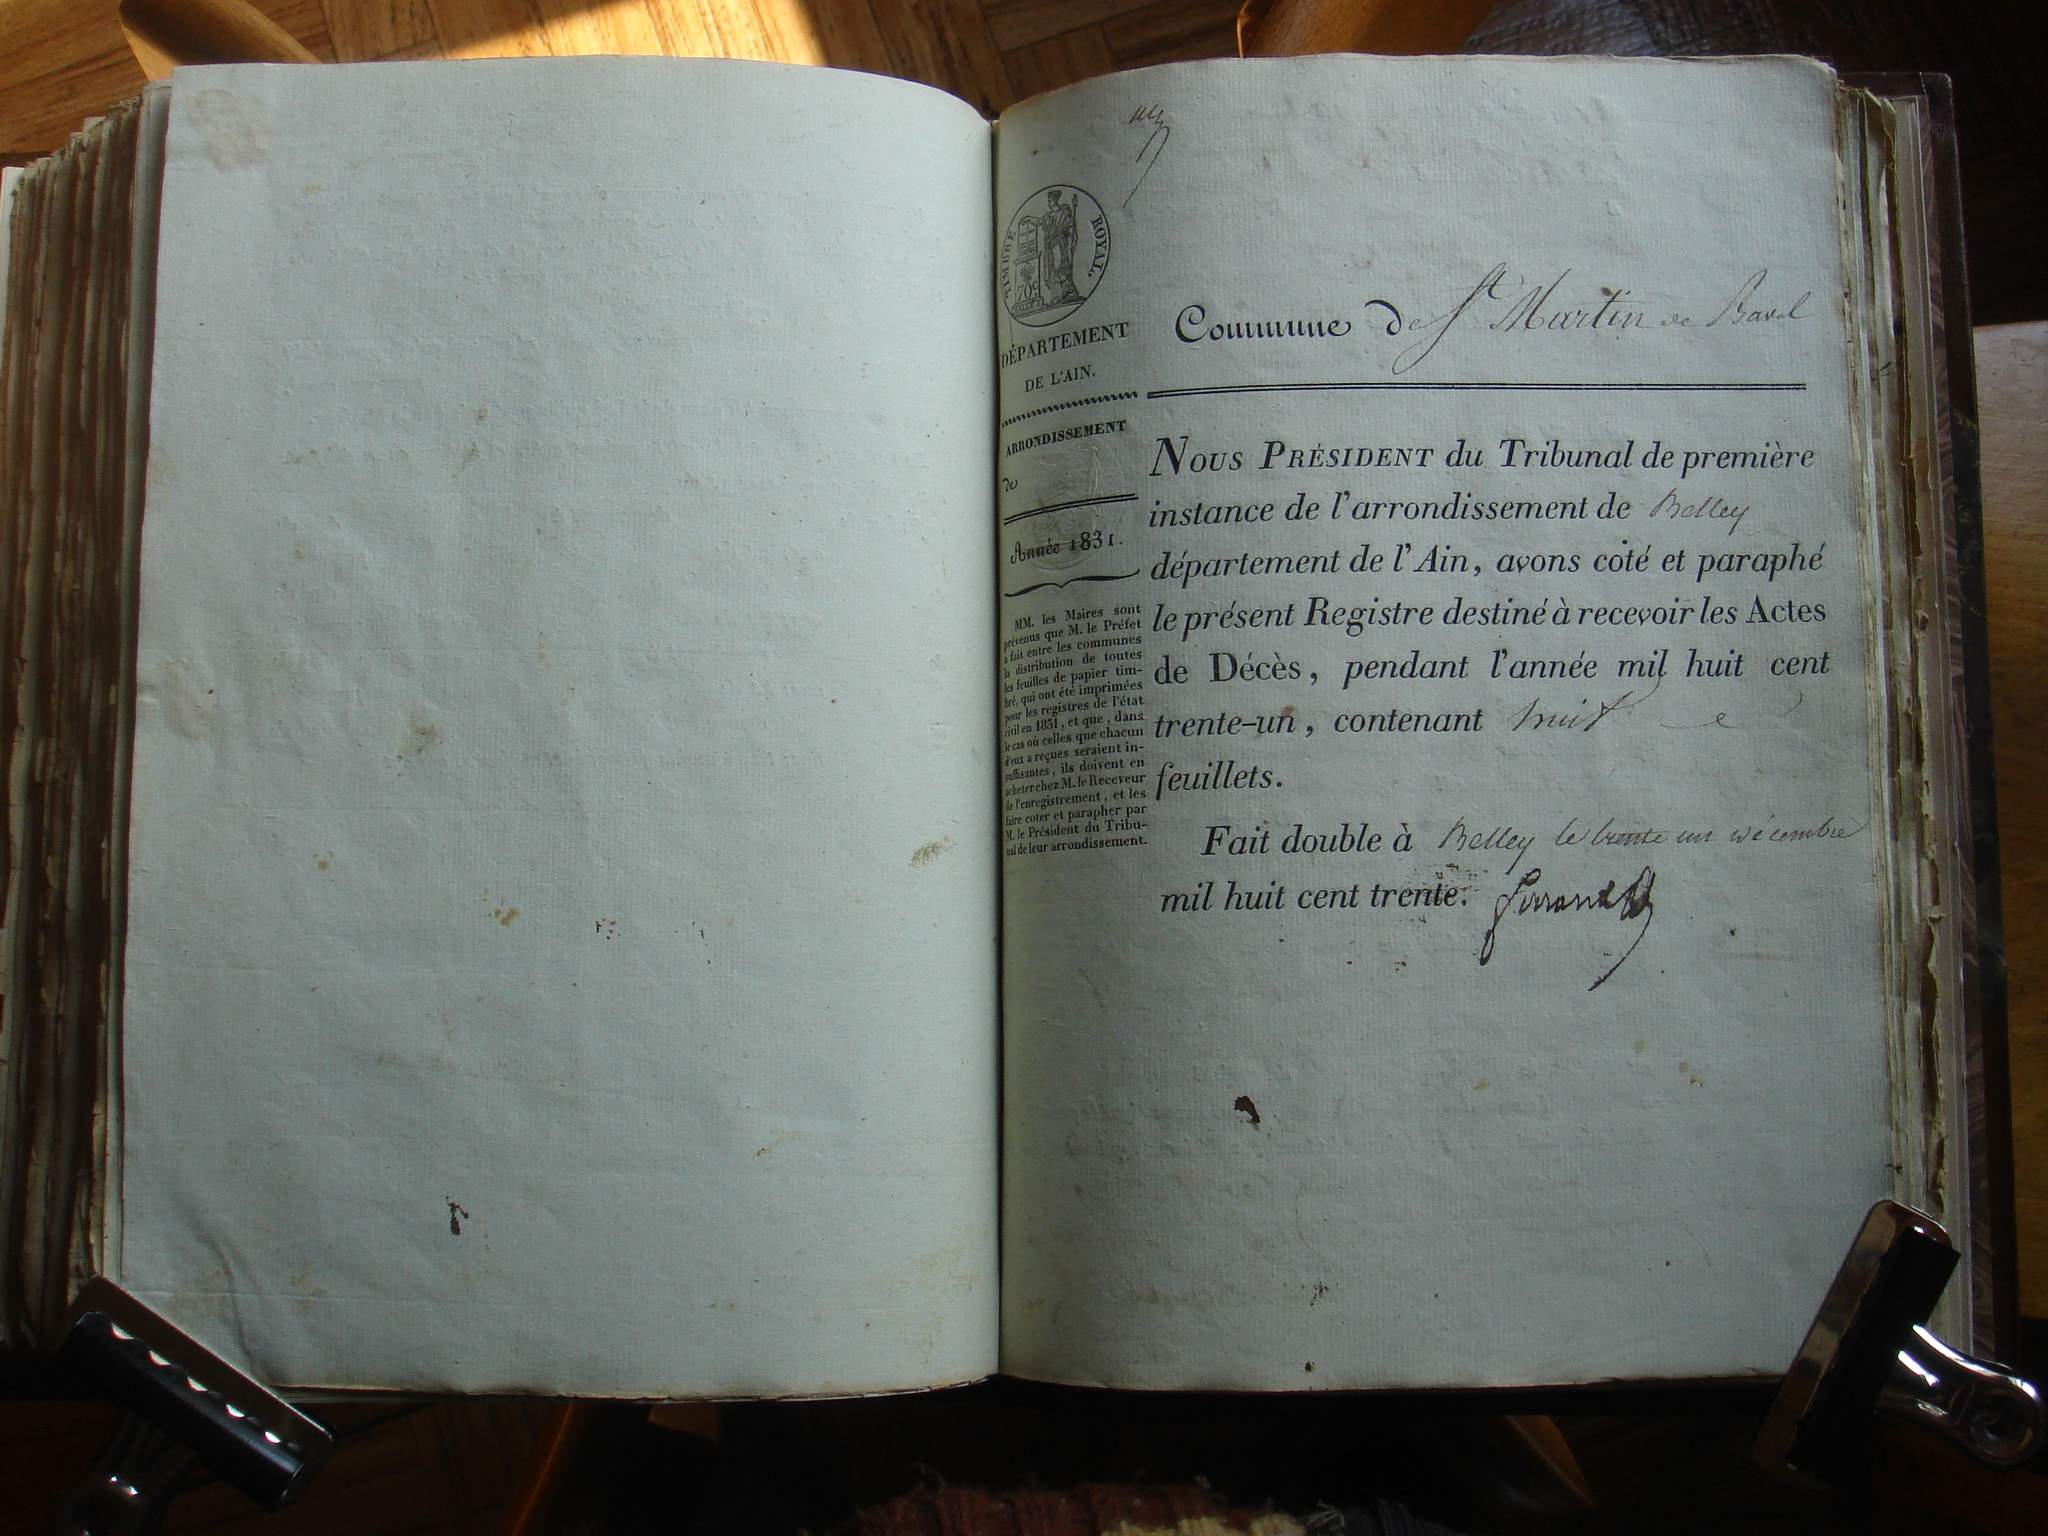 TIMBRE ROYAL.
70c
DÉPARTEMENT
DE L'AIN.
ARRONDISSEMENT
de
Année 1831.
MM. les Maires sont
prévenus que M. le Préfet
a fait entre les communes
la distribution de toutes
les feuilles de papier tim-
bré, qui ont été imprimées
pour les registres de l'état
civil en 1831, et que, dans
le cas où celles que chacun
d'eux a reçues seraient in-
suffisantes, ils doivent en
acheter chez M. le Receveur
de l'enregistrement, et les
faire coter et parapher par
M. le Président du Tribu-
nal de leur arrondissement.
Commune de St Martin de Bavel
NOUS PRÉSIDENT du Tribunal de première
instance de l'arrondissement de Belley
département de l'Ain, avons coté et paraphé
le présent Registre destiné à recevoir les Actes
de Décès, pendant l'année mil huit cent
trente-un, contenant huit
feuillets.
Fait double à Belley le trente un décembre
mil huit cent trente.